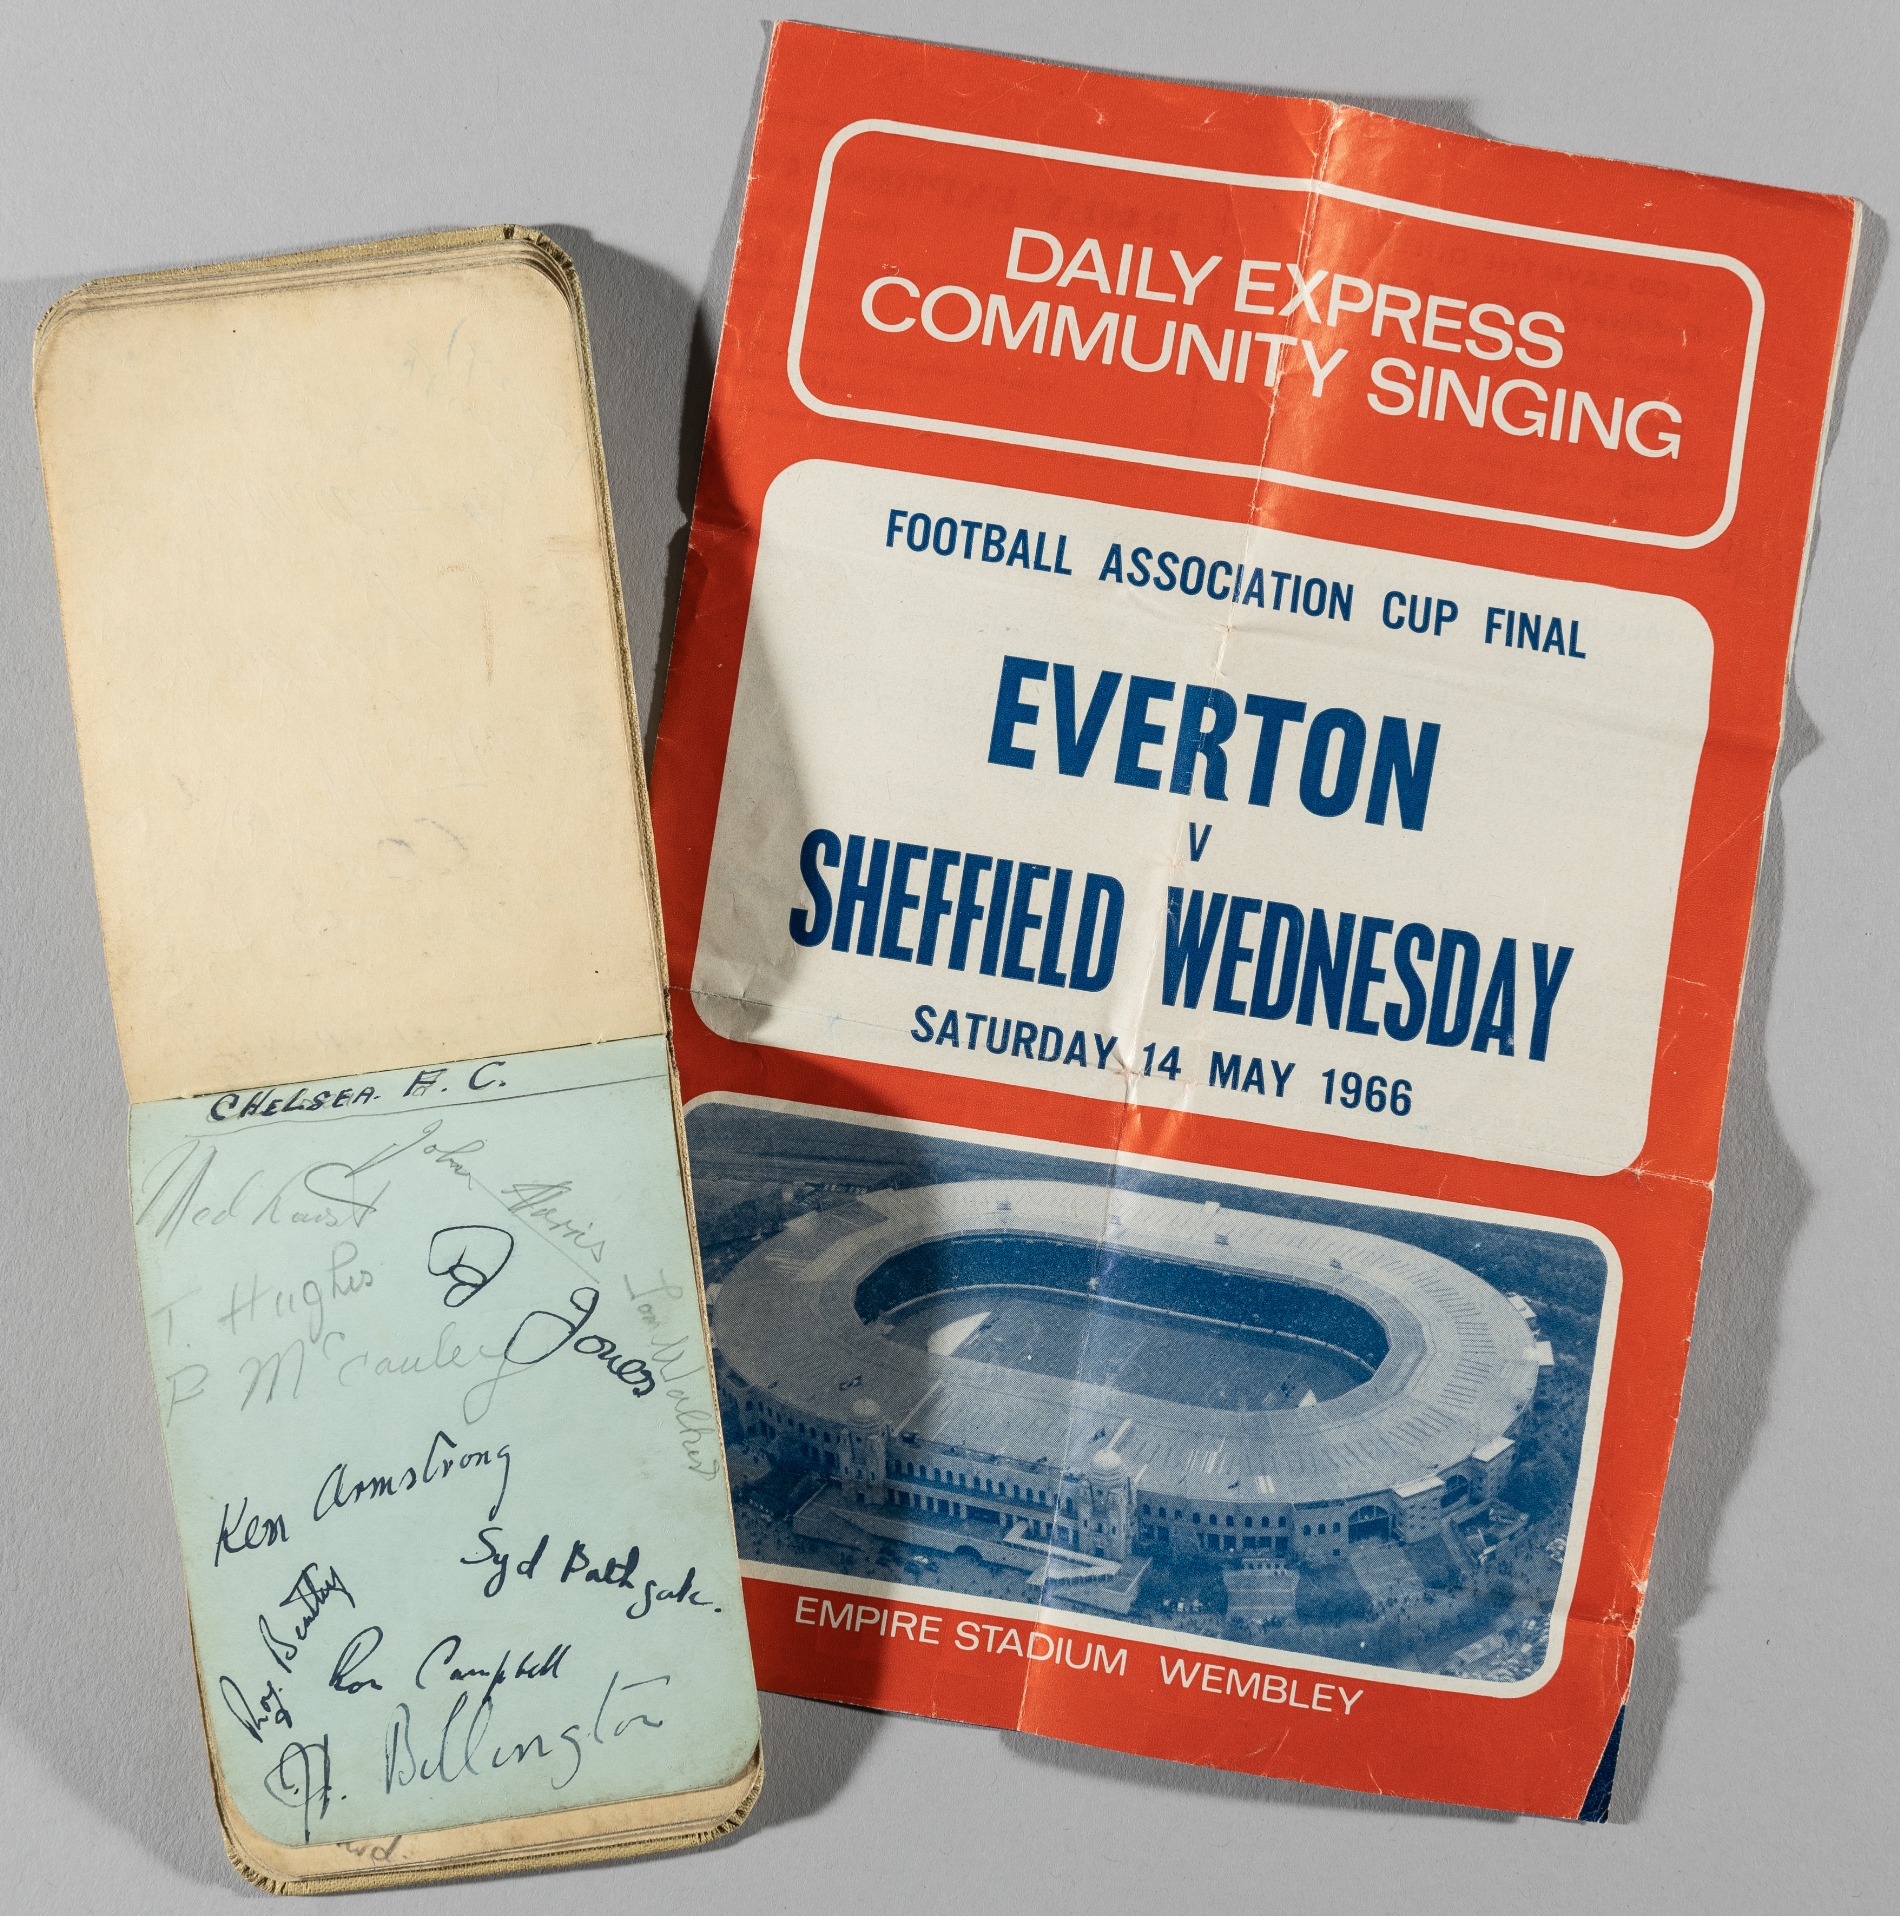 CHELSEA. F. C.
John Harris
T. Hughes
P McCauley
Jones
Tom Walker
Ken Armstrong
Syd Bathgate.
Roy Bentley
Ron Campbell
H. Billington
DAILY EXPRESS
COMMUNITY SINGING
FOOTBALL ASSOCIATION CUP FINAL
EVERTON
V
SHEFFIELD WEDNESDAY
SATURDAY 14 MAY 1966
EMPIRE STADIUM WEMBLEY